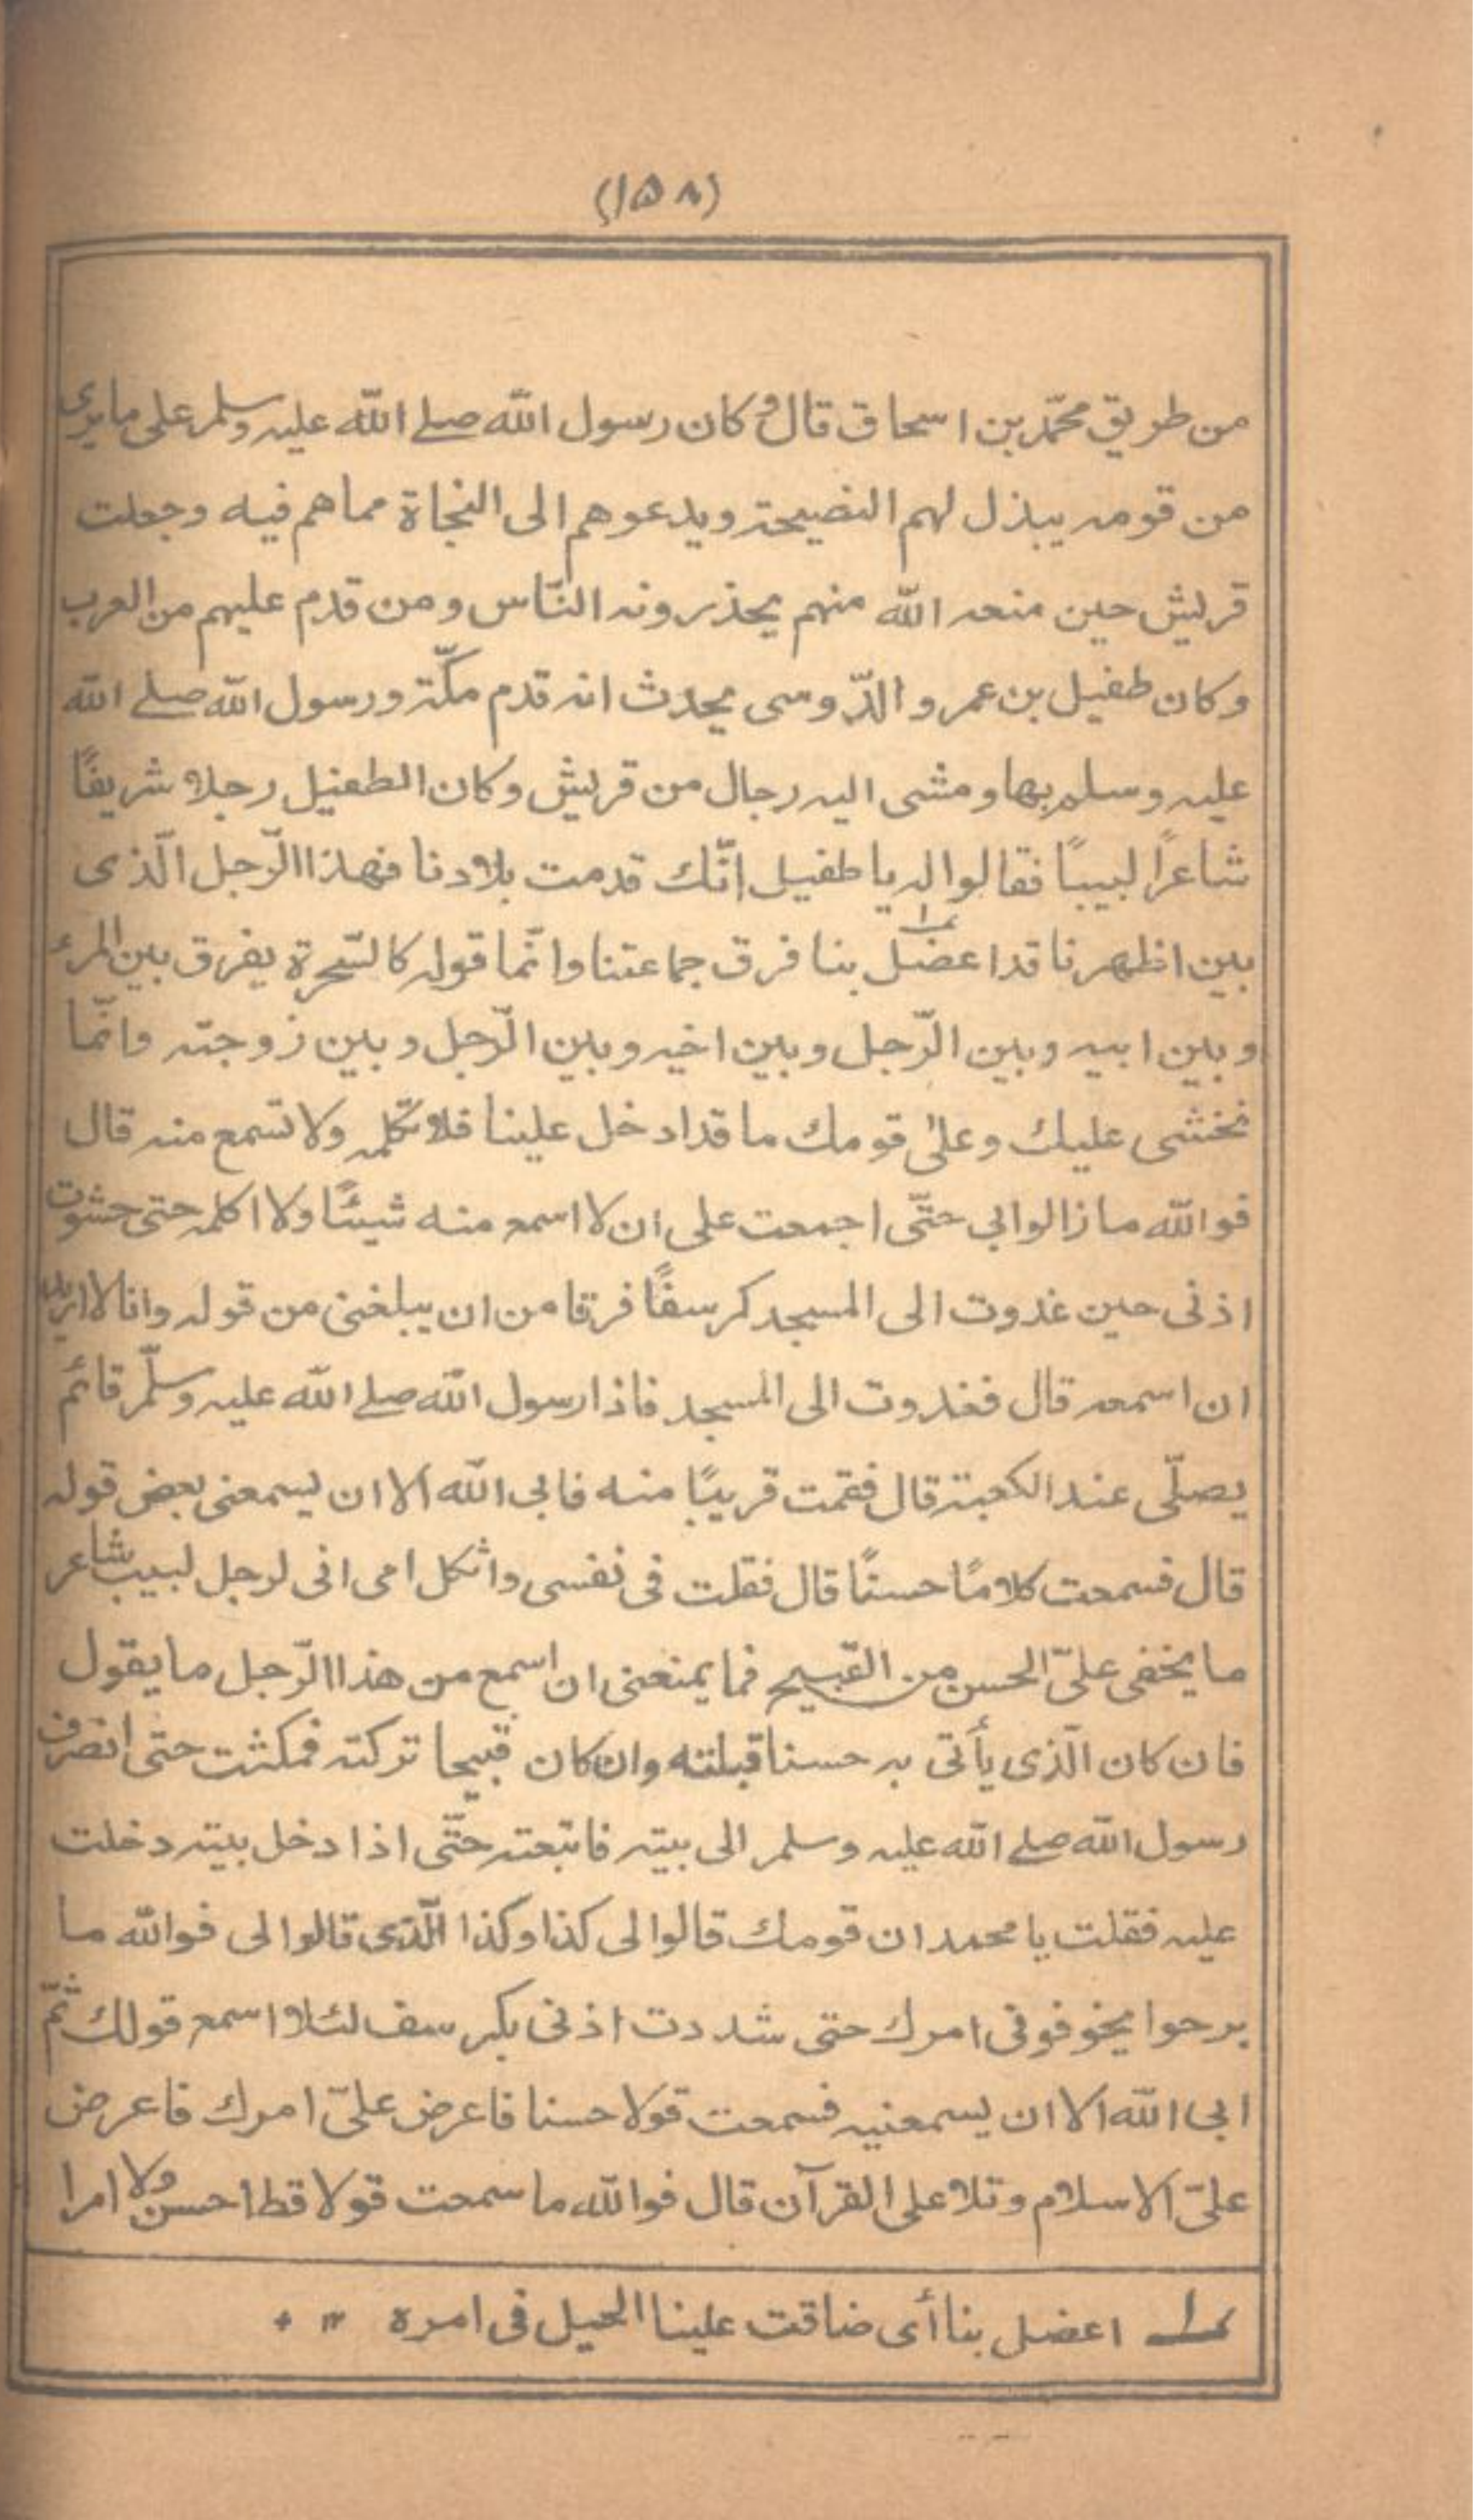 (١٥٨)
من طريق محمّد بن اسحاق قال وكان رسول الله صلے الله عليه وسلم على ما يرى
من قومه يبذل لهم النصيحة ويدعوهم الى النجاة مما هم فيه وجعلت
قريش حين منعه الله منهم يحذرونه النّاس ومن قدم عليهم من العرب
وكان طفيل بن عمرو الدّوسى يحدث انه قدم مكّة ورسول الله صلے الله
عليه وسلم بها ومشى اليه رجال من قريش وكان الطفيل رجلا شريفًا
شاعرًا لبيبًا فقالوا له يا طفيل انّك قدمت بلادنا فهذا الرّجل الّذى
بين اظهرنا قد اعضل بنا فرق جماعتنا وانّما قوله كالسّحرة يفرق بين المرء
وبين ابيه وبين الرّجل وبين اخيه وبين الرّجل وبين زوجته وانّما
نخشى عليك وعلىٰ قومك ما قد ادخل علينا فلا تكلمه ولا تسمع منه قال
فوالله ما زالوا بى حتّى اجمعت على ان لا اسمع منه شيئًا ولا اكلمه حتى حشوت
اذنى حين غدوت الى المسجد كرسفًا فرقا من ان يبلغنى من قوله وانا لا اريد
ان اسمعه قال فغدوت الى المسجد فاذا رسول الله صلے الله عليه وسلّم قائم
يصلّى عند الكعبة قال فقمت قريبًا منه فابى الله الا ان يسمعنى بعض قوله
قال فسمعت كلامًا حسنًا قال فقلت فى نفسى واثكل امى انى لرجل لبيب شاعر
ما يخفى علىّ الحسن من القبيح فما يمنعنى ان اسمع من هذا الرّجل ما يقول
فان كان الّذى يأتى به حسنا قبلته وان كان قبيحا تركته فمكثت حتى انصرف
رسول الله صلے الله عليه وسلم الى بيته فاتبعته حتّى اذا دخل بيته دخلت
عليه فقلت يا محمد ان قومك قالوا لى كذا وكذا الّذى قالوا لى فوالله ما
برحوا يخوفونى امرك حتى شددت اذنى بكرسف لئلا اسمع قولك ثمّ
ابى الله الا ان يسمعنيه فسمعت قولا حسنا فاعرض علىّ امرك فاعرض
علىّ الاسلام وتلا على القرآن قال فوالله ما سمعت قولا قط احسن ولا امرا
ــ١ــ اعضل بنا أى ضاقت علينا الحيل فى امره